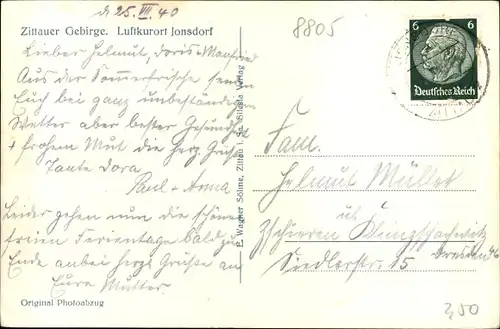 d 25. VII. 40
8805
Zittauer Gebirge. Luftkurort Jonsdorf
Lieber Helmut, Doris + Manfried
Aus der Sommerfrische senden
Euch bei ganz unbeständigen
Wetter aber bester Gesundheit
+ frohem Mut die herz. Grüße
Tante Dora
Paul + Anna
Leider gehen nun die schönen
freien Ferientage bald zu
Ende anbei herzl Grüße an
Eure Mutter.
Original Photoabzug
E. Wagner Söhne, Zittau i. Sa. Silesia Verlag
6 6
Deutsches Reich
Fam.
Helmut Müller
Zschieren
Siedlerstr. 15
Dresden
2,50